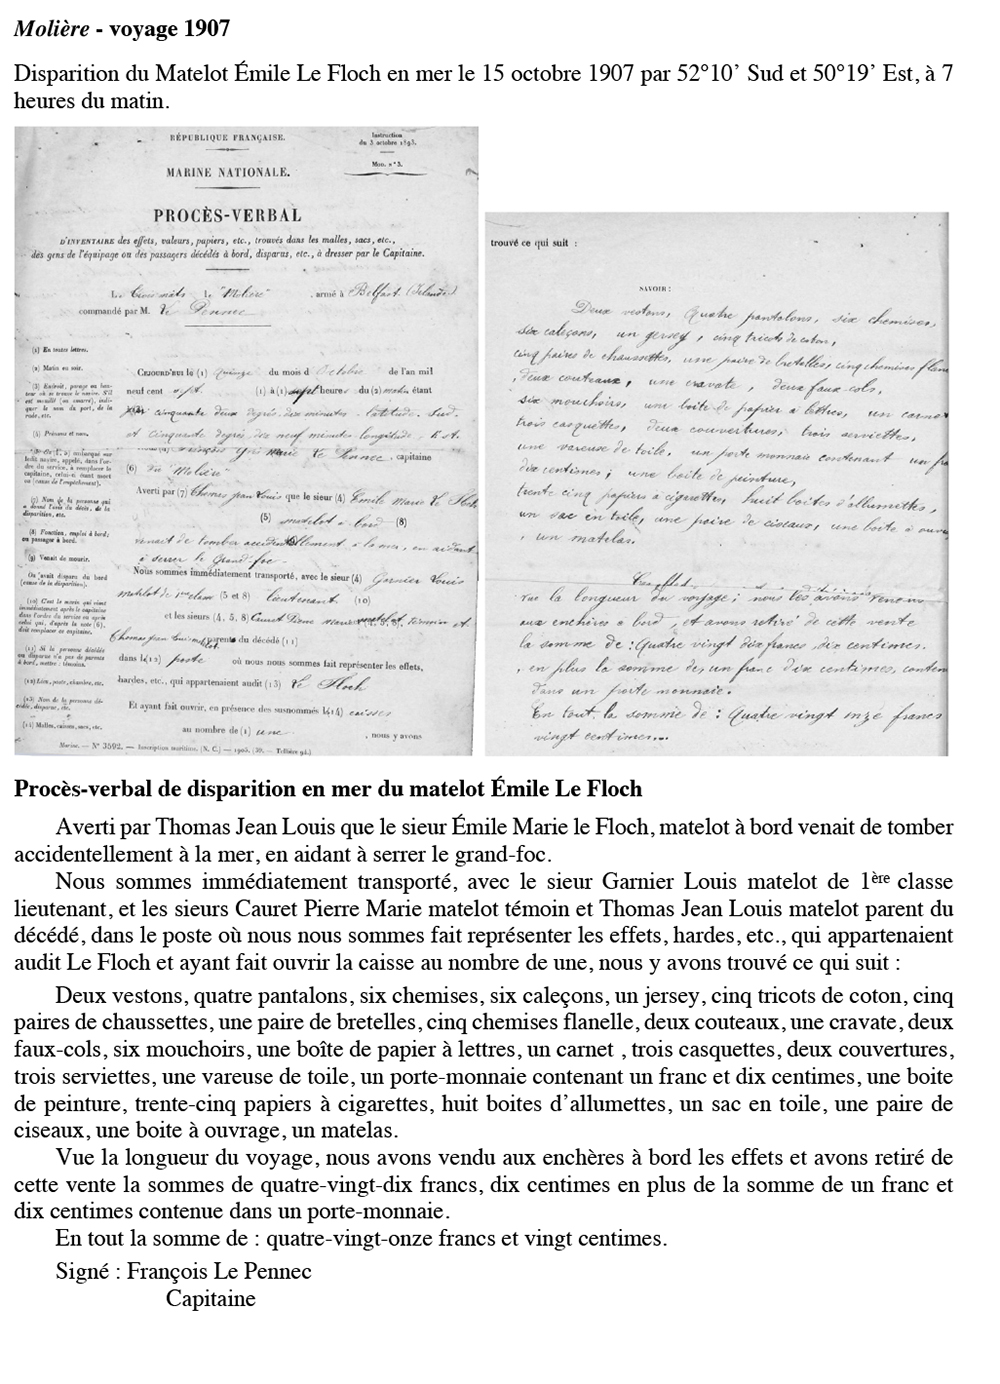 Molière - voyage 1907
Disparition du Matelot Émile Le Floch en mer le 15 octobre 1907 par 52°10’ Sud et 50°19’ Est, à 7
heures du matin.
RÉPUBLIQUE FRANÇAISE.
Instruction
du 3 octobre 1893.
Mod. n° 3.
MARINE NATIONALE.
PROCÈS-VERBAL
D'INVENTAIRE des effets, valeurs, papiers, etc., trouvés dans les malles, sacs, etc.,
des gens de l'équipage ou des passagers décédés à bord, disparus, etc., à dresser par le Capitaine.
Le Trois mâts le "Molière" , armé à Belfast (Irlande)
commandé par M. Le Pennec
(1) En toutes lettres.
(2) Matin ou soir.
(5) Prénoms et nom.
(8) Fonction, emploi à bord;
ou passager à bord.
(9) Venait de mourir.
Ou avait disparu du bord
(cause de la disparition).
(12) Lieu, poste, chambre, etc.
(14) Malles, caisses, sacs, etc.
CEJOURD'HUI le (1) Quinze du mois d Octobre de l'an mil
neuf cent sept (1) à (1) sept heures du (2) matin étant
par cinquante deux degrés dix minutes latitude Sud
et cinquante degrés dix neuf minutes longitude Est.
François Marie Le Pennec, capitaine
(6) du "Molière"
Averti par (7) Thomas Jean Louis que le sieur (4) Emile Marie Le Floch
(5) matelot à bord (8)
venait de tomber accidentellement à la mer, en aidant
à serrer le Grand-foc.
Nous sommes immédiatement transporté, avec le sieur (4) Garnier Louis
matelot de 1ère classe (5 et 8) lieutenant (10)
et les sieurs (4, 5, 8) Cauret Pierre Marie matelot témoin et
Thomas Jean Louis matelot parent du décédé (11)
dans le (12) poste où nous nous sommes fait représenter les effets,
hardes, etc., qui appartenaient audit (13) Le Floch
Et ayant fait ouvrir, en présence des susnommés l (14) caisse
au nombre de (1) une , nous y avons
Marine. — N° 3592. — Inscription maritime. (N. C.) — 1905. (39. — Tellière 9d.)
trouvé ce qui suit :
SAVOIR :
Deux vestons, Quatre pantalons, six chemises,
six caleçons, un jersey, cinq tricots de coton,
cinq paires de chaussettes, une paire de bretelles, cinq chemises flane
, deux couteaux, une cravate, deux faux cols,
six mouchoirs, une boîte de papier à lettres, un carnet
trois casquettes, deux couvertures, trois serviettes,
une vareuse de toile, un porte monnais contenant un fra
dix centimes; une boîte de peinture,
trente cinq papiers à cigarettes, huit boites d'allumettes,
un sac en toile, une paire de ciseaux, une boîte à ouvra
, un matelas.
vue la longueur du voyage; nous les avons venens
aux enchères à bord, et avons retiré de cette vente
la somme de : Quatre vingt dix francs, dix centimes.
, en plus la somme de, un franc dix centimes, conten
dans un porte monnaie.
En tout la somme de : Quatre vingt onze francs
vingt centimes...
Procès-verbal de disparition en mer du matelot Émile Le Floch
Averti par Thomas Jean Louis que le sieur Émile Marie le Floch, matelot à bord venait de tomber
accidentellement à la mer, en aidant à serrer le grand-foc.
Nous sommes immédiatement transporté, avec le sieur Garnier Louis matelot de 1ère classe
lieutenant, et les sieurs Cauret Pierre Marie matelot témoin et Thomas Jean Louis matelot parent du
décédé, dans le poste où nous nous sommes fait représenter les effets, hardes, etc., qui appartenaient
audit Le Floch et ayant fait ouvrir la caisse au nombre de une, nous y avons trouvé ce qui suit :
Deux vestons, quatre pantalons, six chemises, six caleçons, un jersey, cinq tricots de coton, cinq
paires de chaussettes, une paire de bretelles, cinq chemises flanelle, deux couteaux, une cravate, deux
faux-cols, six mouchoirs, une boîte de papier à lettres, un carnet , trois casquettes, deux couvertures,
trois serviettes, une vareuse de toile, un porte-monnaie contenant un franc et dix centimes, une boite
de peinture, trente-cinq papiers à cigarettes, huit boites d’allumettes, un sac en toile, une paire de
ciseaux, une boite à ouvrage, un matelas.
Vue la longueur du voyage, nous avons vendu aux enchères à bord les effets et avons retiré de
cette vente la sommes de quatre-vingt-dix francs, dix centimes en plus de la somme de un franc et
dix centimes contenue dans un porte-monnaie.
En tout la somme de : quatre-vingt-onze francs et vingt centimes.
Signé : François Le Pennec
Capitaine